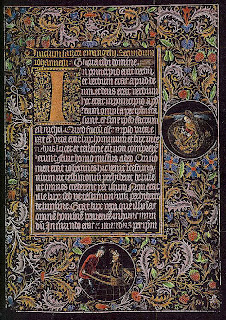 Inicium sancti evangelii Secundum
iohannem Gloria tibi domine
In principio erat verbu
et verbum erat apud de
um et deus erat verbum
hoc erat in principio apd
deum omnia per ipsum
sunt et sine ipso factum
est nichil Quod factum est in ipso vita e
rat et vita erat lux hominum et lux in te
nebris lucet et tenebre eam non compre
Fuit homo missus a deo Cui no
men erat iohannes hic venit in testimo
nium ut testimonium perhiberet de lumine
ut omnes crederent per illum Non erat
ille lux sed ut testimonium perhiberet
de lumine Erat lux vera que illumi
nat omnem hominem venientem in hunc mun
dum In mundo erat et mundus per ipsum